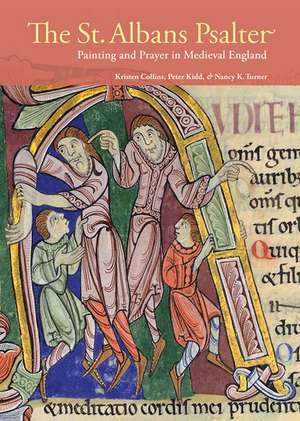 The St. Albans Psalter
Painting and Prayer in Medieval England
Kristen Collins, Peter Kidd, & Nancy K. Turner
omſ gen
auribus
omſ qu
tiſ orb
Quiqu
& filii
&meditatio cordiſ mei prudenti